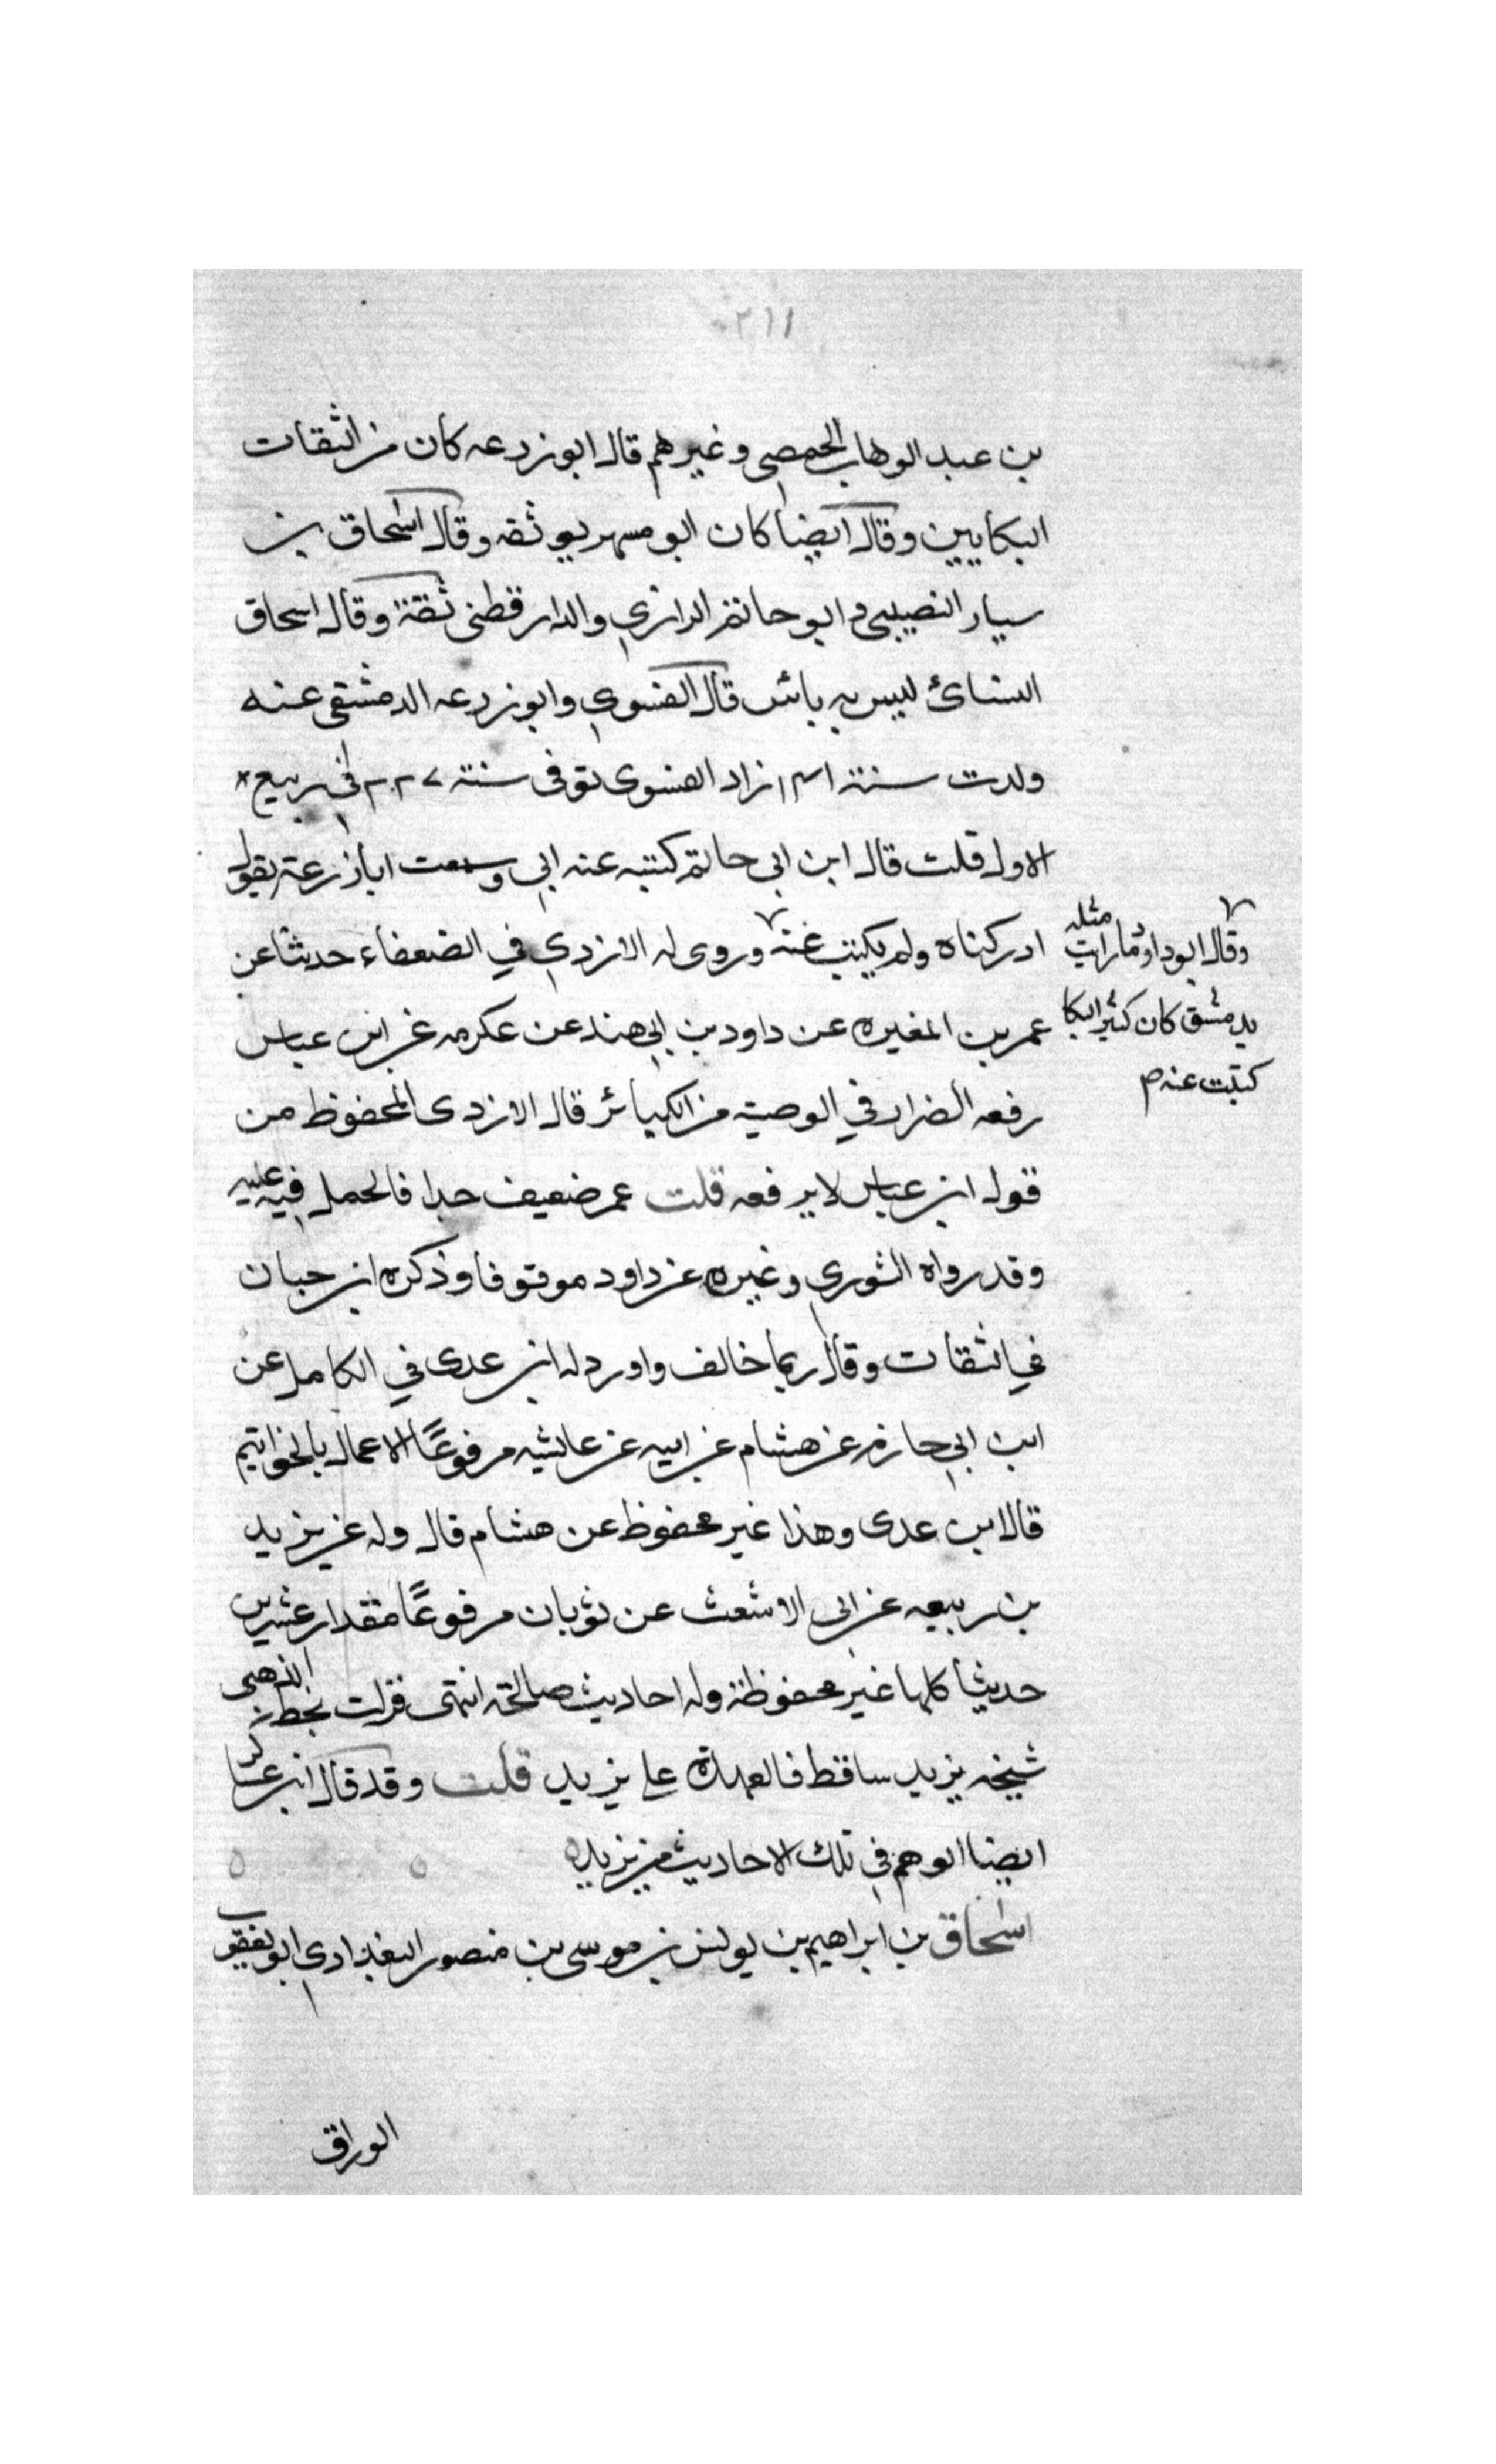 ٢١١
بن عبد الوهاب الحمصي وغيرهم قال ابو زرعه كان من الثقات
البكايين وقال ايضا كان ابو مسهر يوثقه وقال اسحاق بن
سيار النصيبي و ابو حاتم الرازي والدارقطنى ثقة وقال اسحاق
النسائ ليس به باس قال الفسوي وابو زرعه الدمشقى عنه
ولدت سنة ١٤١ زاد الفسوى توفى سنة ٢٢٧ في ربيع
الاول قلت قال ابن ابى حاتم كتب عنه ابي وسمعت ابا زرعة يقول
ادركناه ولم يكتب عنه وروى له الازدي في الضعفاء حديثا عن
وقال ابو داود ما رايت مثله
بدمشق كان كثير البكا
كتبت عنه م
عمر بن المغيره عن داود بن ابي هند عن عكرمه عن ابن عباس
رفعه الضرار في الوصية من الكبائر قال الازدى المحفوظ من
قول ابن عباس لا يرفعه قلت عمر ضعيف جدا فالحمل فيه عليه
وقد رواه الثوري وغيره عن داود موقوفا وذكره ابن حبان
في الثقات وقال ربما خالف واورد له ابن عدى في الكامل عن
ابن ابي حازم عن هشام عن ابيه عن عايشه مرفوعًا الاعمال بالخواتيم
قال ابن عدى وهذا غير محفوظ عن هشام قال وله عن يزيد
بن ربيعه عن ابى الاشعث عن ثوبان مرفوعًا مقدار عشرين
حديثا كلها غير محفوظة وله احاديث صالحة انتهى قرات بخط الذهبى
شيخه يزيد ساقط فالعهدة على يزيد قلت وقد قال ابن عساكر
ايضا الوهم في تلك الاحاديث من يزيد ه
اسحاق بن ابراهيم بن يونس بن موسى بن منصور البغدادي ابو يعقوب
الوراق